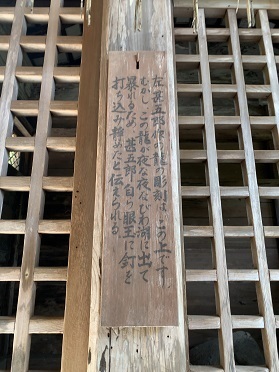 左甚五郎作の龍の彫刻はこの上です
むかし この龍が夜な夜なびわ湖に出て
暴れるため 甚五郎自ら眼玉に釘を
打ち込み鎮めたと伝えられる。